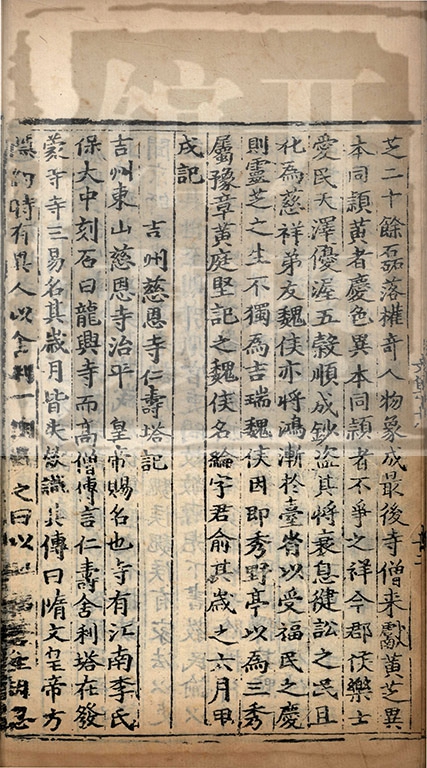 芝二十餘磊落權奇人物象成最後寺僧來獻黃芝異
本同頴黃者慶色異本同頴者不爭之祥今郡侯樂士
愛民天澤優渥五榖順成鈔盗其將衰息健訟之民且
化為慈祥弟友魏侯亦將鴻漸於臺省以受福民之慶
則靈芝之生不獨為吉瑞魏侯因即秀野亭以為三秀
屬豫章黃庭堅記之魏侯名綸字君俞其歲之六月甲
戌記
吉州慈恩寺仁壽塔記
吉州東山慈恩寺治平 皇帝賜名也寺有江南李氏
保大中刻石曰龍興寺而高僧傳言仁壽舍利塔在發
蒙寺寺三易名其歲月皆失攷識其傳曰隋文皇帝方
時有異人以舍利一 之曰以